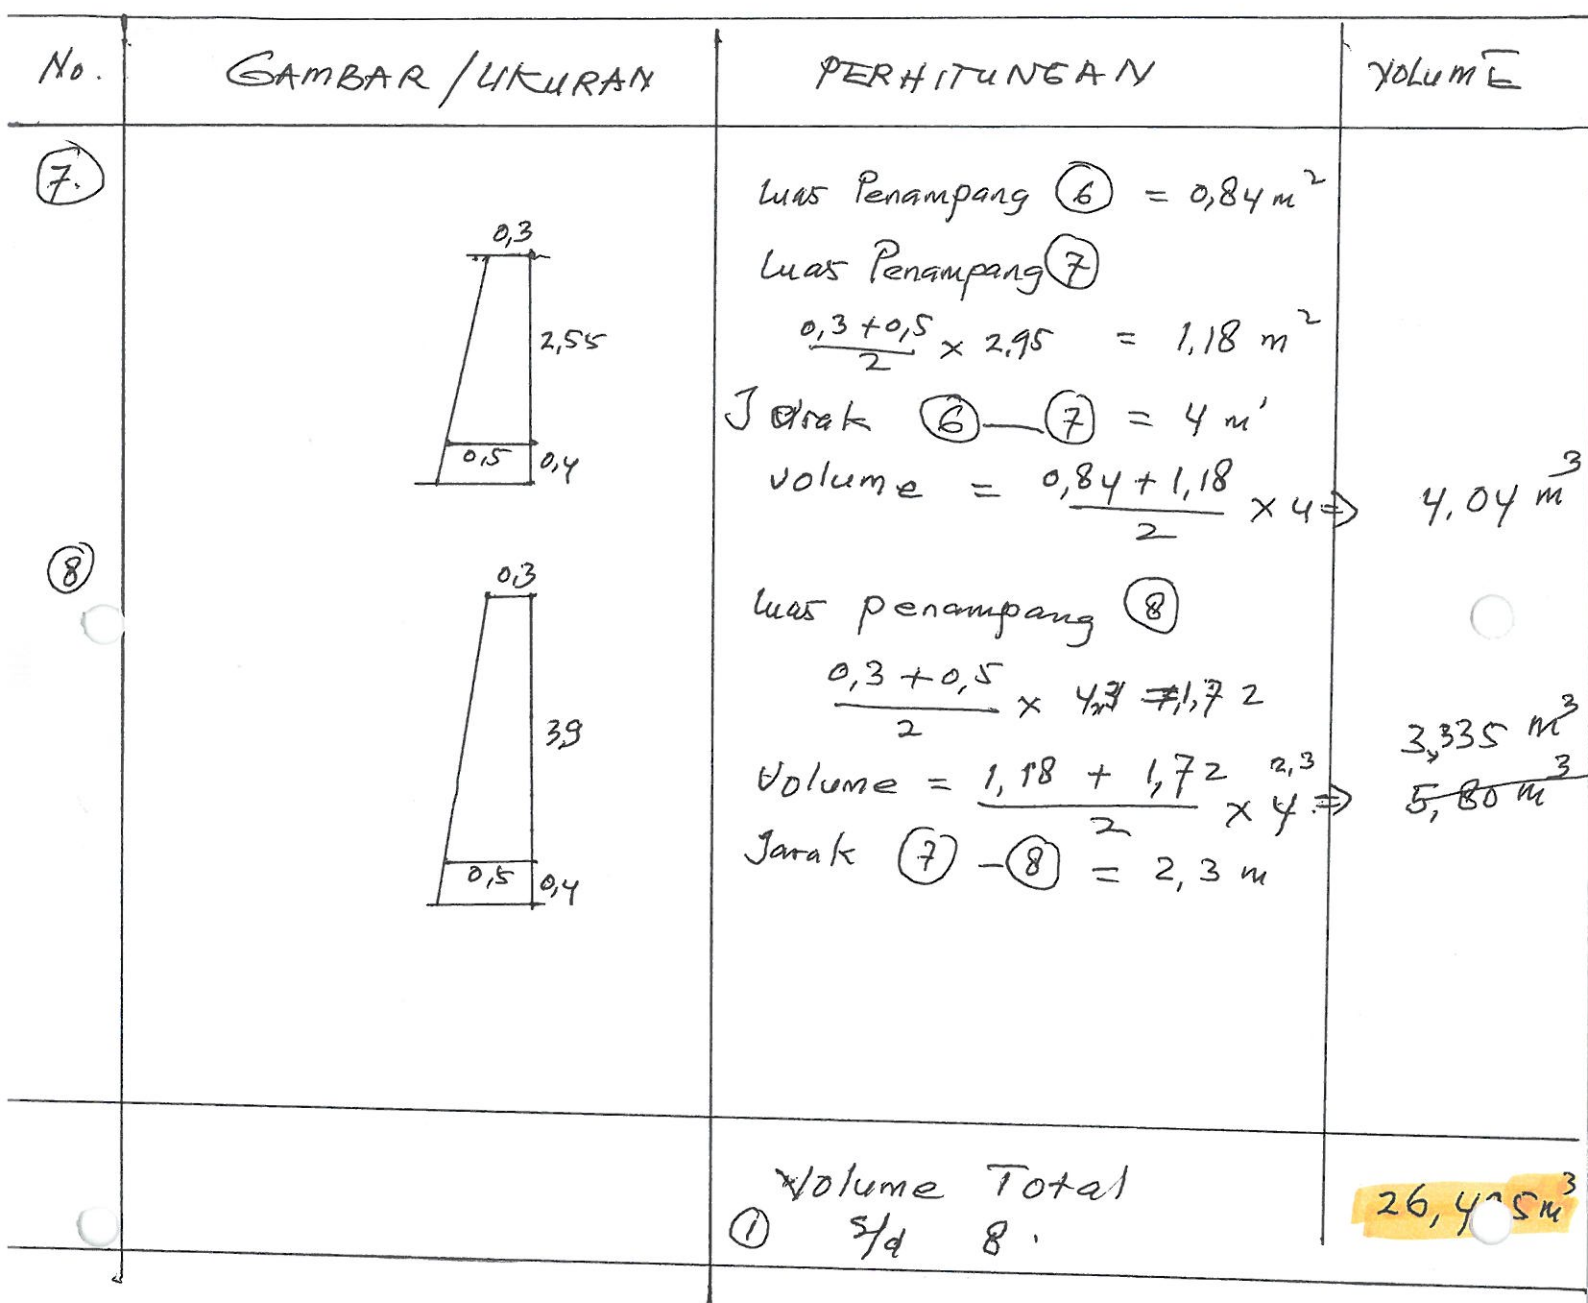 No. GAMBAR / UKURAN PERHITUNGAN VOLUME
7.
0,3
2,55
0,5 0,4
Luas Penampang 6 = 0,84 m²
Luas Penampang 7
0,3 + 0,5 / 2 × 2,95 = 1,18 m²
Jarak 6 — 7 = 4 m'
Volume = 0,84 + 1,18 / 2 × 4 ⇒ 4,04 m³
8
0,3
3,9
0,5 0,4
Luas penampang 8
0,3 + 0,5 / 2 × 4,3 = 1,72
3,335 m³
Volume = 1,18 + 1,72 / 2 × 4 2,3 ⇒ 5,80 m³
Jarak 7 - 8 = 2,3 m
Volume Total
1 s/d 8.